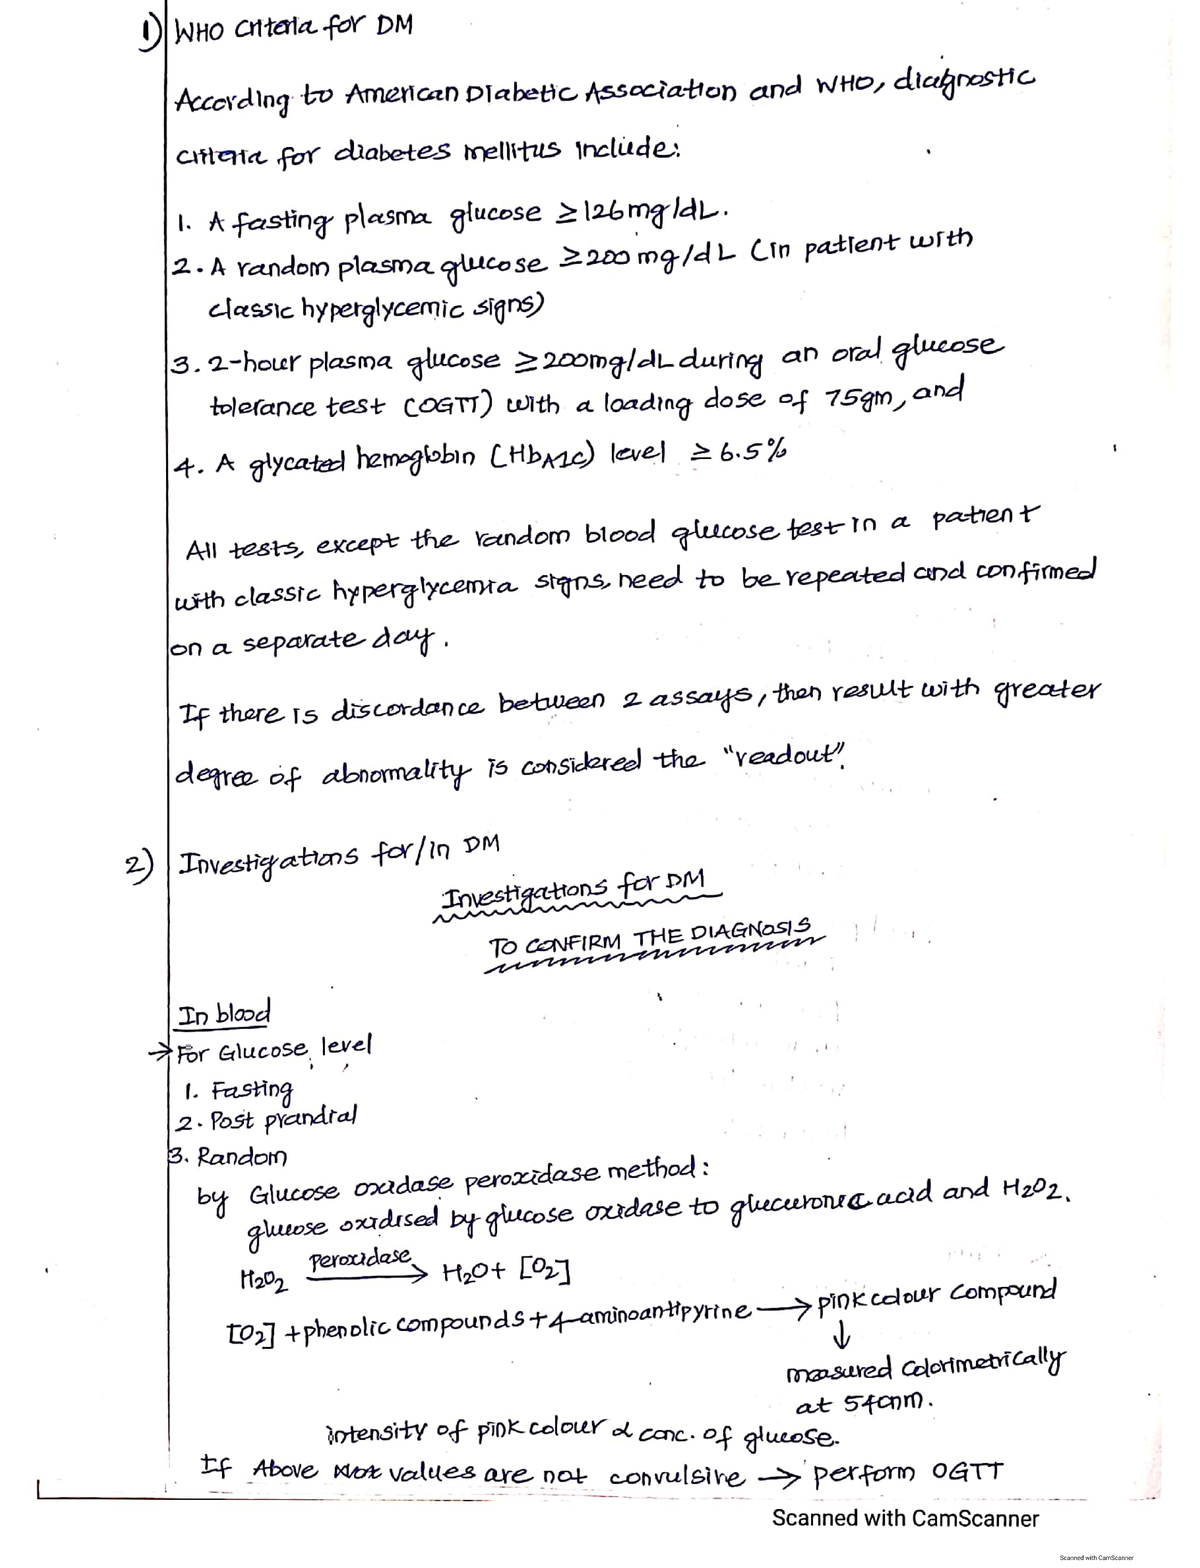 1) WHO Criteria for DM
According to American Diabetic Association and WHO, diagnostic
criteria for diabetes mellitus include:
1. A fasting plasma glucose ≥126mg/dL.
2. A random plasma glucose ≥200mg/dL (in patient with
classic hyperglycemic signs)
3. 2-hour plasma glucose ≥200mg/dL during an oral glucose
tolerance test (OGTT) with a loading dose of 75gm, and
4. A glycated hemoglobin (HbA1c) level ≥6.5%
All tests, except the random blood glucose test in a patient
with classic hyperglycemia signs, need to be repeated and confirmed
on a separate day.
If there is discordance between 2 assays, then result with greater
degree of abnormality is considered the "readout".
2) Investigations for/in DM
Investigations for DM
TO CONFIRM THE DIAGNOSIS
In blood
→ For Glucose level
1. Fasting
2. Post prandial
3. Random
by Glucose oxidase peroxidase method:
glucose oxidised by glucose oxidase to glucuronic acid and H2O2.
H2O2 peroxidase → H2O + [O2]
[O2] + phenolic compounds + 4-aminoantipyrine → pink colour compound
↓
measured colorimetrically
at 540nm.
intensity of pink colour α conc. of glucose.
If Above values are not convulsive → perform OGTT
Scanned with CamScanner
Scanned with CamScanner